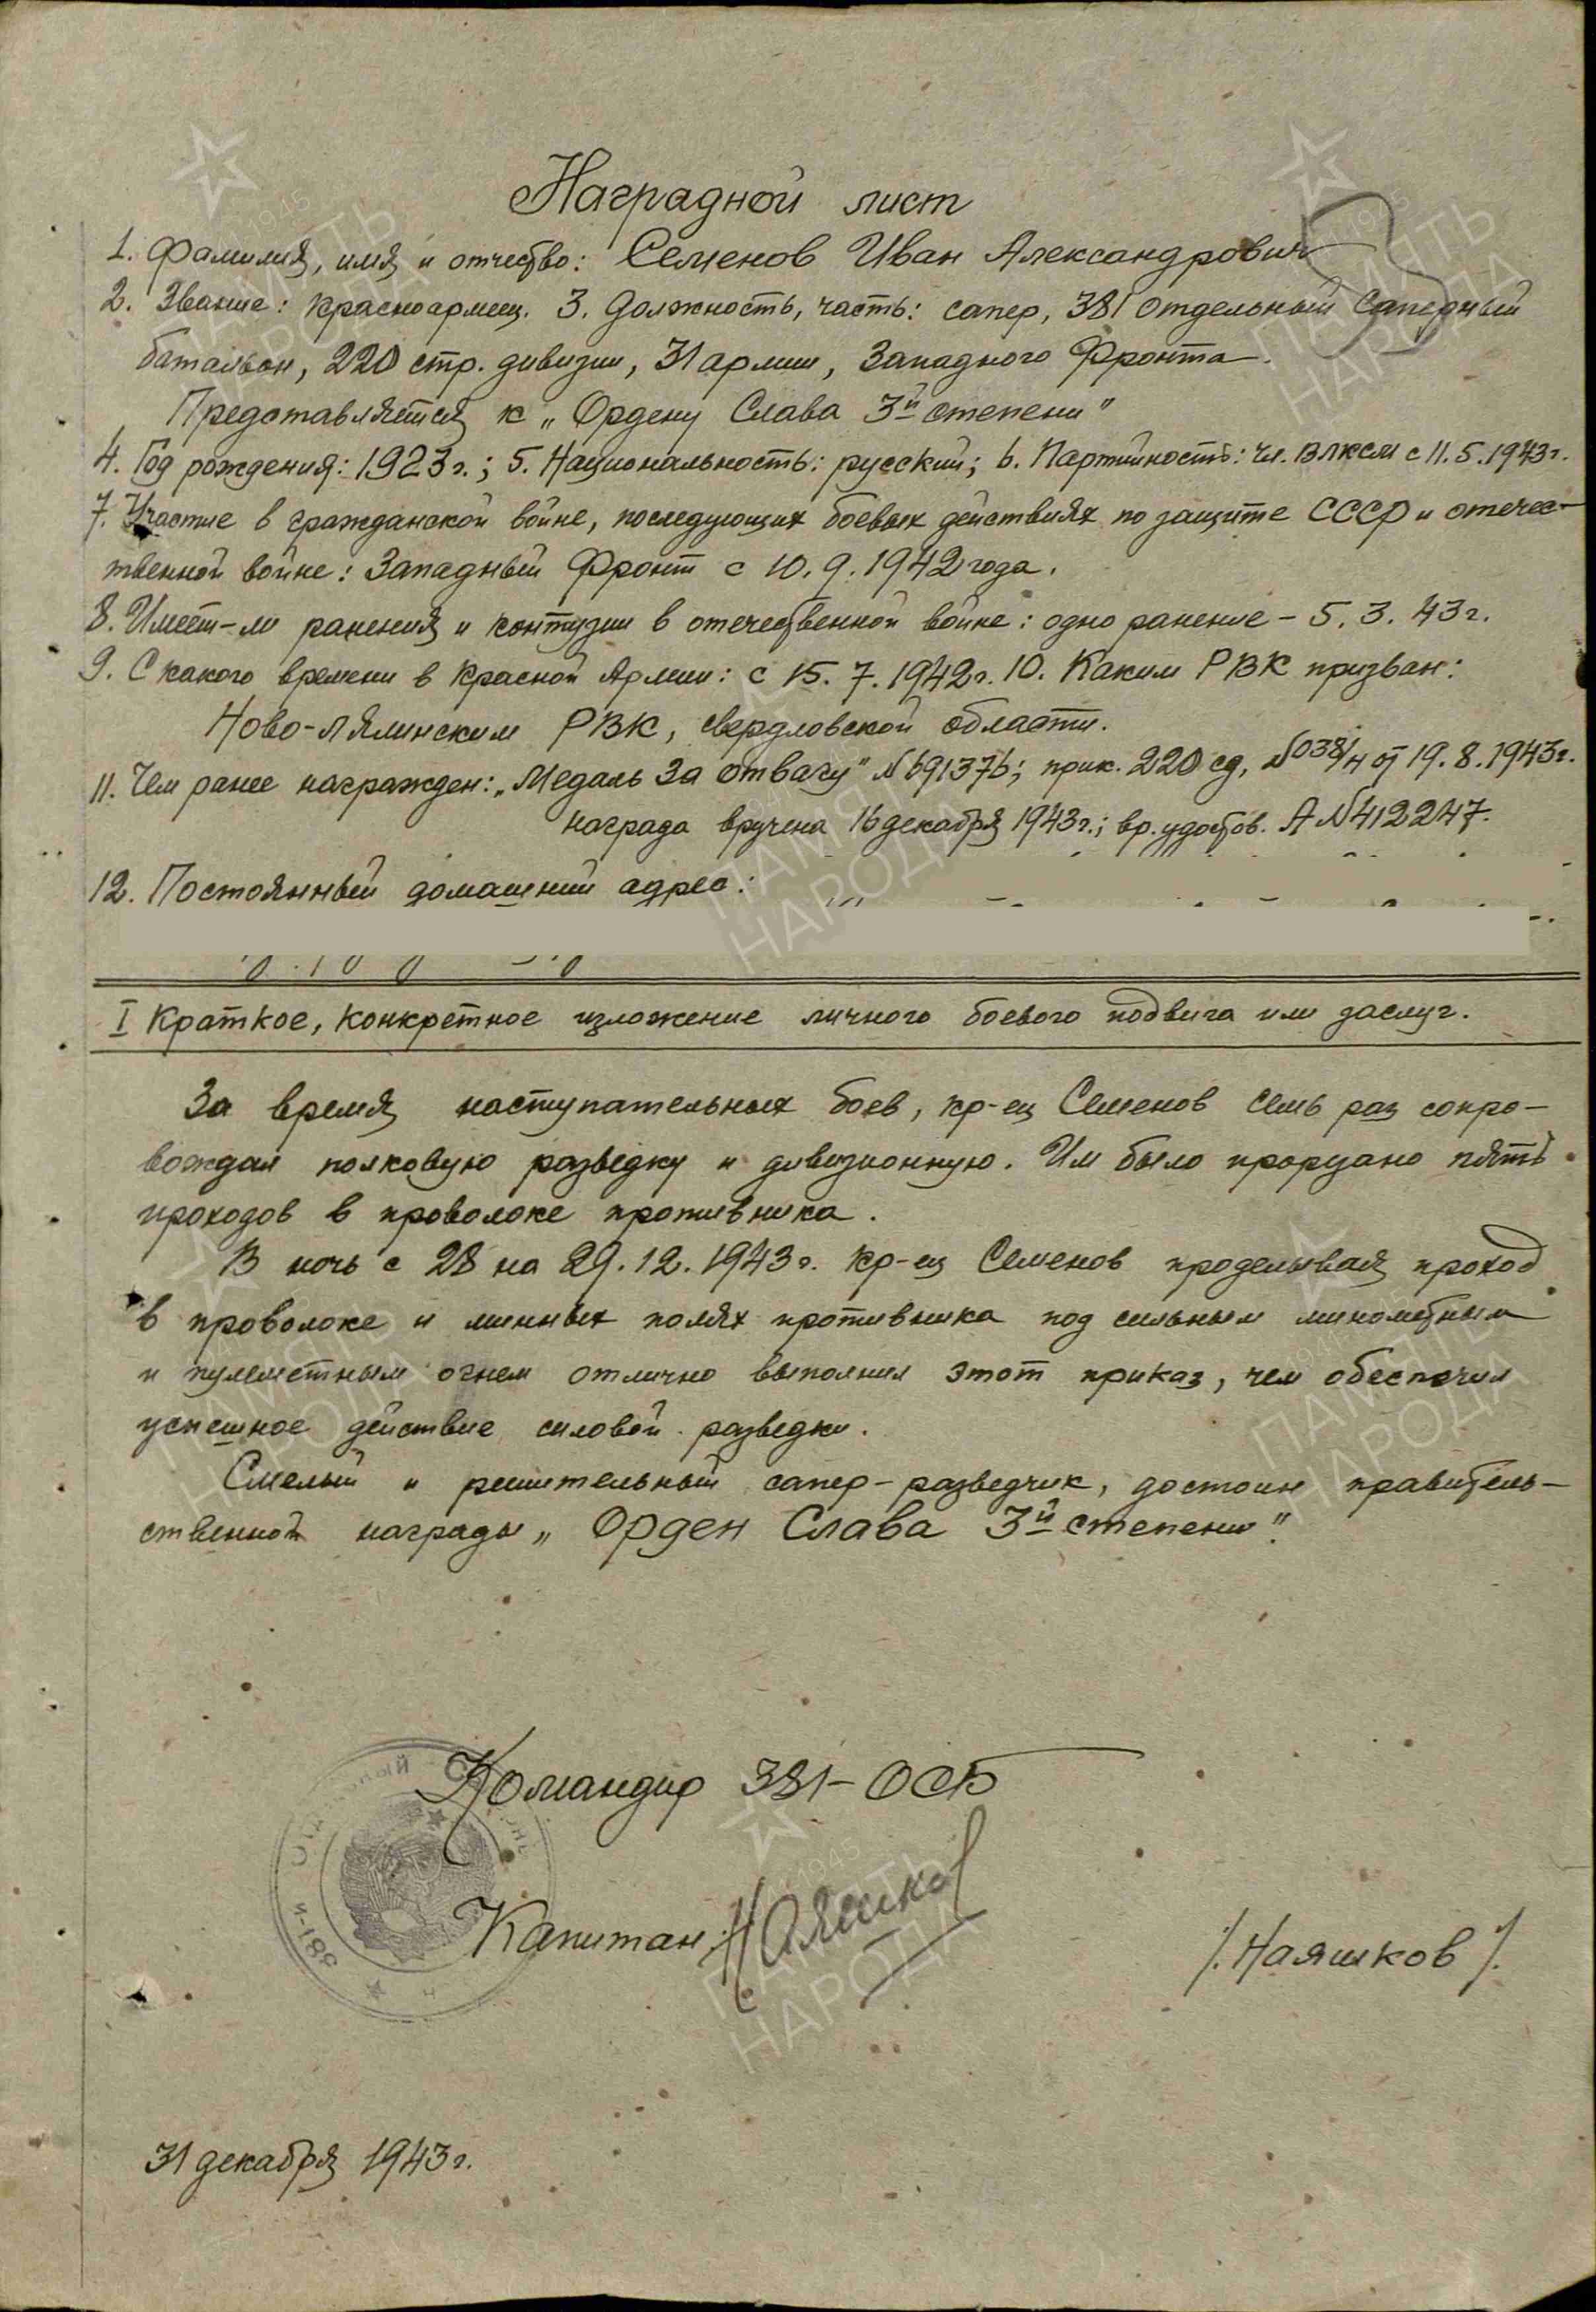 Наградной лист
1. Фамилия, имя и отчество: Семенов Иван Александрович
2. Звание: красноармеец. 3. Должность, часть: сапер, 381 отдельный саперный
батальон, 220 стр. дивизии, 31 армии, Западного Фронта.
Представляется к „Ордену Слава 3й степени"
4. Год рождения: 1923 г.; 5. Национальность: русский; 6. Партийность: чл. ВЛКСМ с 11.5.1943г.
7. Участие в гражданской войне, последующих боевых действиях по защите СССР и отечес-
твенной войне: Западный Фронт с 10.9.1942 года.
8. Имеет-ли ранения и контузии в отечественной войне: одно ранение – 5.3.43г.
9. С какого времени в Красной Армии: с 15.7.1942г. 10. Каким РВК призван:
Ново-Лялинским РВК, Свердловской области.
11. Чем ранее награжден: „Медаль За отвагу" №691376; прик. 220 сд, №038/н от 19.8.1943г.
награда вручена 16 декабря 1943г.; вр. удостов. А №412247.
12. Постоянный домашний адрес:
I Краткое, конкретное изложение личного боевого подвига или заслуг.
За время наступательных боев, кр-ец Семенов семь раз сопро-
вождал полковую разведку и дивизионную. Им было прорезано пять
проходов в проволоке противника.
В ночь с 28 на 29.12.1943г. кр-ец Семенов проделывая проход
в проволоке и минных полях противника под сильным минометным
и пулеметным огнем отлично выполнил этот приказ, чем обеспечил
успешное действие силовой разведки.
Смелый и решительный сапер-разведчик, достоин правитель-
ственной награды „Орден Слава 3й степени".
Командир 381-ОСБ
Капитан Наяшков /.Наяшков/.
31 декабря 1943г.
381-й
ПАМЯТЬ
НАРОДА